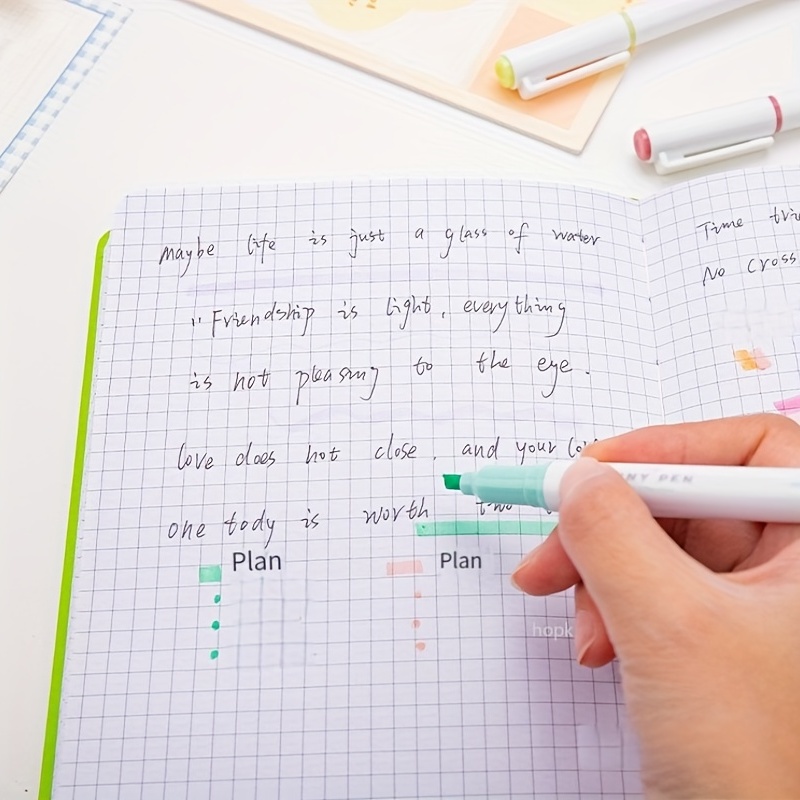 maybe life is just a glass of water
"Friendship is light, everything
is not pleasing to the eye.
love does not close, and your
one tody is worth two
Plan
Plan
Time
No cross
NY PEN
hopk